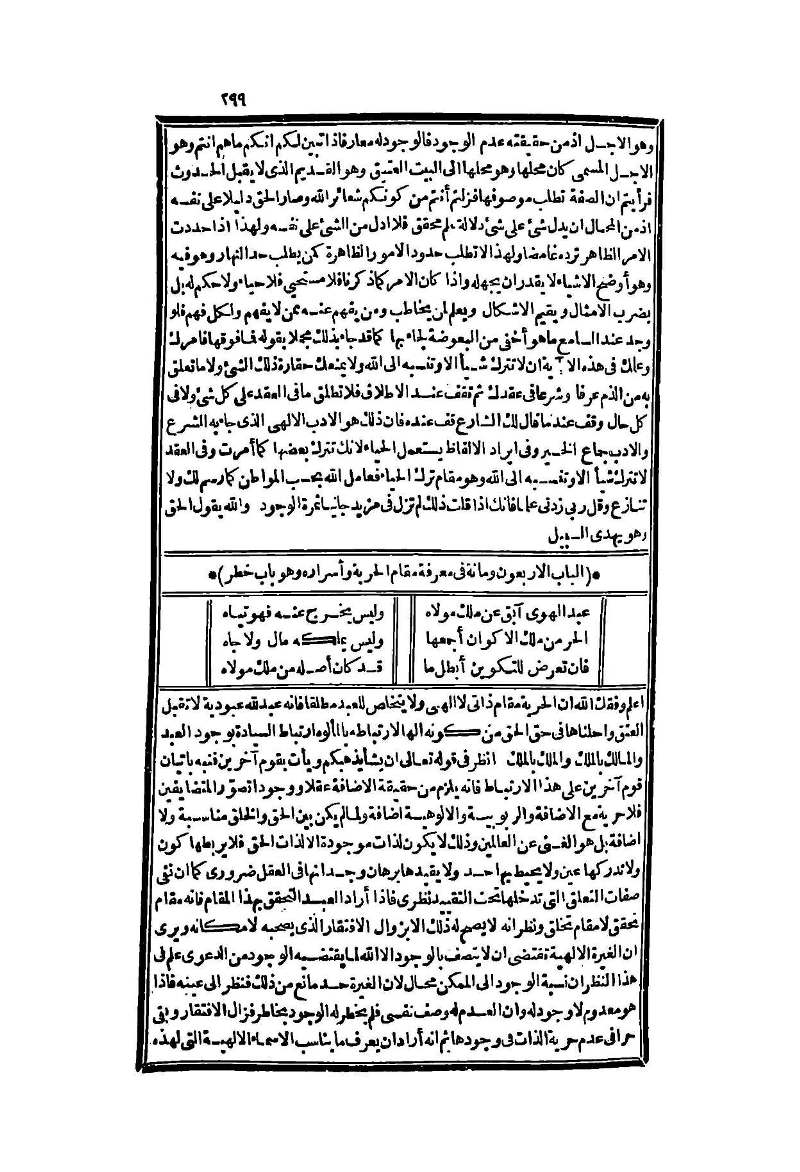 ٢٩٩
وهو الاجل اذ من حقيقته عدم الوجود فالوجود له معار فاذا تبين لكم انكم ما هم انتم وهو
الاجل المسمى كان محلها وهو محلها الى البيت العتيق وهو القديم الذى لا يقبل الحدوث
فرأيتم ان الصفة تطلب موصوفها فزلتم أنتم من كونكم شعائر الله وصار الحق دليلا على نفسه
اذ من المحال ان يدل شئ على شئ دلالة علم محقق فلا ادل من الشئ على نفسه ولهذا اذا حددت
الامر الظاهر ترده غامضا ولهذا لا تطلب حدود الامور الظاهرة كمن يطلب حد النهار وهو فيه
وهو أوضح الاشياء لا يقدر ان يجهله واذا كان الامر كما ذكرناه فلا مستحيي فلا حياء ولا حكم له بل
يضرب الامثال ويقيم الاشكال ويعلم لمن يخاطب ومن يفهم عنه ممن لا يفهم ولكل فهم فلو
وجد عند السامع ما هو أخفى من البعوضة لجاء بها كما قد جاء بذلك مجملا بقوله فما فوقها فامرك
وعلمك فى هذه الآية ان لا تترك شيأ الا وتنسبه الى الله ولا يمنعك حقارة ذلك الشئ ولا ما تعلق
به من الذم عرفا وشرعا فى عقدك ثم تقف عند الاطلاق فلا تطلق ما فى العقد على كل شئ ولا فى
كل حال وقف عند ما قال لك الشارع قف عنده فان ذلك هو الادب الالهى الذى جاء به الشرع
والادب جماع الخير وفى ايراد الالفاظ يستعمل الحياء لانك تترك بعضها كما أمرت وفى العقد
لا تترك شيأ الا وتنسبه الى الله وهو مقام ترك الحياء فعامل الله بحسب المواطن كما رسم لك ولا
تنازع وقل ربى زدنى علما فانك اذا قلت ذلك لم تزل فى مزيد جانيا ثمرة الوجود والله يقول الحق
وهو يهدى السبيل
*(الباب الاربعون ومائة فى معرفة مقام الحرية وأسراره وهو باب خطر)*
عبد الهوى آبق عن ملك مولاه وليس يخرج عنه فهو تياه
الحر من ملك الاكوان أجمعها وليس يملكه مال ولا جاه
فان تعرض للتكوين أبطل ما قد كان أصله من ملك مولاه
اعلم وفقك الله ان الحرية مقام ذاتى لا الهى ولا يتخلص للعبد مطلقا فانه عبد لله عبودية لا تقبل
العتق واحلناها فى حق الحق من كونه الها لارتباطه بالمألوه ارتباط السيادة بوجود العبد
والمالك بالملك والملك بالملك انظر فى قوله تعالى ان يشأ يذهبكم ويأت بقوم آخرين فنبه باتيان
قوم آخرين على هذا الارتباط فانه يلزم من حقيقة الاضافة عقلا ووجودا تصور المتضايفين
فلا حرية مع الاضافة والربوبية والالوهية اضافة ولما لم يكن بين الحق والخلق مناسبة ولا
اضافة بل هو الغنى عن العالمين وذلك لا يكون لذات موجودة الا لذات الحق فلا يربطها كون
ولا تدركها عين ولا يحيط بها حد ولا يقيدها برهان وجدانها فى العقل ضرورى كما ان نفى
صفات التعلق التى تدخلها تحت التقييد نظرى فاذا أراد العبد التحقق بهذا المقام فانه مقام
تحقق لا مقام تخلق ونظر انه لا يصح له ذلك الا بزوال الافتقار الذى يصحبه لامكانه ويرى
ان الغيرة الالهية تقتضى ان لا يتصف بالوجود الا الله لما يقتضيه الوجود من الدعوى علم فى
هذا النظر ان نسبة الوجود الى الممكن محال لان الغيرة حد مانع من ذلك فنظر الى عينه فاذا
هو معدوم لا وجود له وان العدم له وصف نفسى فلم يخطر له الوجود بخاطر فزال الافتقار وبقى
حرا فى عدم حرية الذات فى وجودها ثم انه أراد ان يعرف ما يناسب الاسماء الالهية التى لهذه